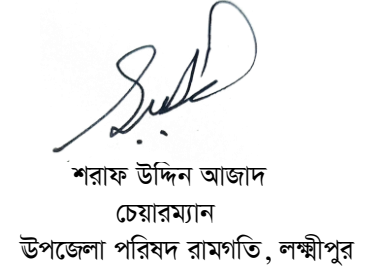 শরাফ উদ্দিন আজাদ
চেয়ারম্যান
উপজেলা পরিষদ রামগতি, লক্ষ্মীপুর